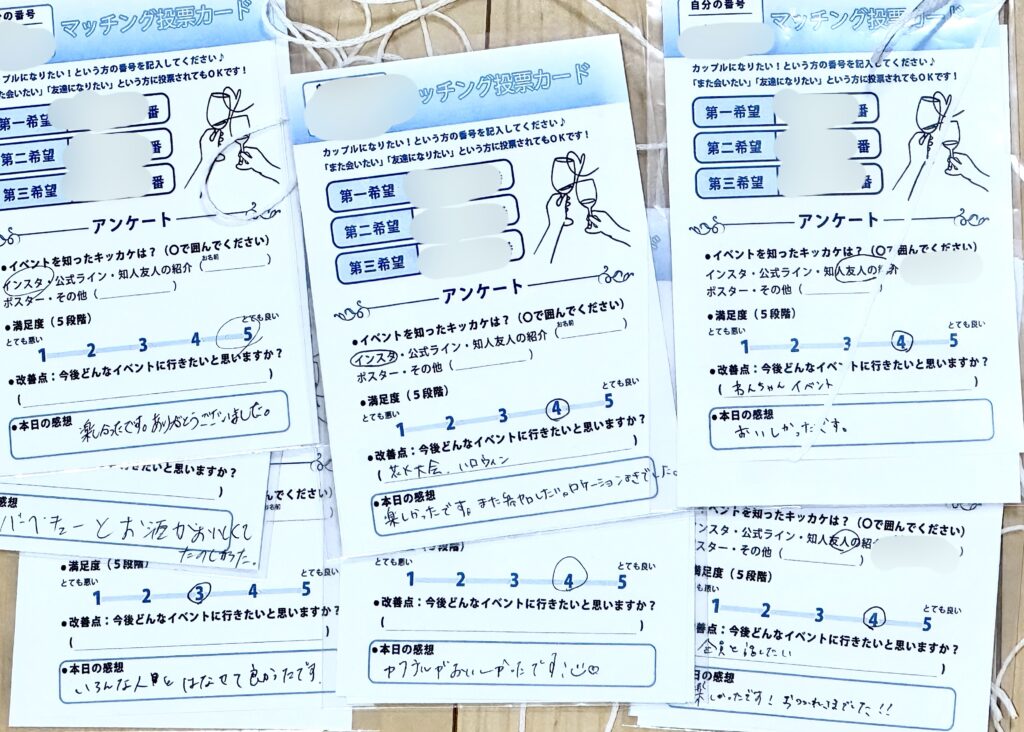 分の番号
マッチング投票カード
ップルになりたい！という方の番号を記入してください♪
また会いたい」「友達になりたい」という方に投票されてもOKです！
第一希望 番
第二希望 番
第三希望 番
アンケート
●イベントを知ったキッカケは？（〇で囲んでください）
インスタ・公式ライン・知人友人の紹介（お名前 ）
ポスター・その他（ ）
●満足度（５段階）
とても悪い とても良い
1 2 3 4 5
●改善点：今後どんなイベントに行きたいと思いますか？
（ ）
●本日の感想
楽しかったです。ありがとうございました。
ッチング投票カード
カップルになりたい！という方の番号を記入してください♪
「また会いたい」「友達になりたい」という方に投票されてもOKです！
第一希望
第二希望
第三希望
アンケート
●イベントを知ったキッカケは？（〇で囲んでください）
インスタ・公式ライン・知人友人の紹介（お名前 ）
ポスター・その他（ ）
●満足度（５段階）
とても悪い とても良い
1 2 3 4 5
●改善点：今後どんなイベントに行きたいと思いますか？
（花火大会、ハロウィン ）
●本日の感想
楽しかったです。また参加したい。ロケーションよきでした。
自分の番号
マッチング投票カード
カップルになりたい！という方の番号を記入してください♪
「また会いたい」「友達になりたい」という方に投票されてもOKです！
第一希望 番
第二希望 番
第三希望 番
アンケート
●イベントを知ったキッカケは？（〇で囲んでください）
インスタ・公式ライン・知人友人の紹
ポスター・その他（ ）
●満足度（５段階）
とても悪い とても良い
1 2 3 4 5
●改善点：今後どんなイベントに行きたいと思いますか？
（わんちゃんイベント ）
●本日の感想
おいしかったです。
なイベントに行きたいと思いますか？
）
感想
バーベキューとお酒がおいしくて
たのしかった。
んでください）
お名前
●満足度（５段階）
とても悪い
1 2 3 4 5
●改善点：今後どんなイベントに行きたいと思いますか？
（ ）
●本日の感想
いろんな人とはなせて良かったです
とても悪い とても良い
1 2 3 4 5
●改善点：今後どんなイベントに行きたいと思いますか？
（ ）
●本日の感想
カクテルがおいしかったです！
イベントを知ったキッカケは？（〇で囲んでください）
ンスタ・公式ライン・知人友人の紹
スター・その他（ ）
満足度（５段階）
も悪い とても良い
1 2 3 4 5
善点：今後どんなイベントに行きたいと思いますか？
全員と話したい ）
日の感想
楽しかったです！おつかれさまでした！！